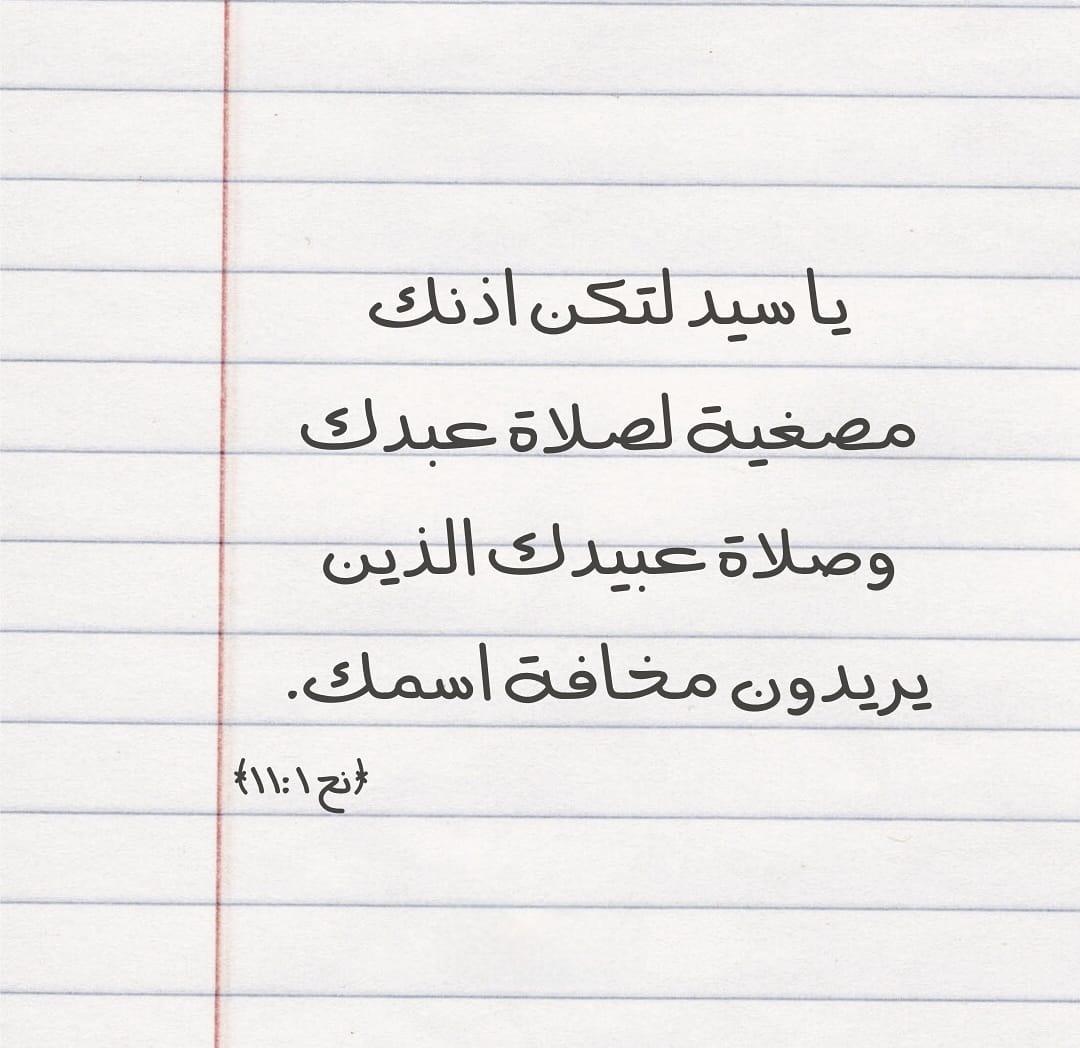 يا سيد لتكن اذنك
مصغية لصلاة عبدك
وصلاة عبيدك الذين
يريدون مخافة اسمك.
﴿نح ١:١١﴾